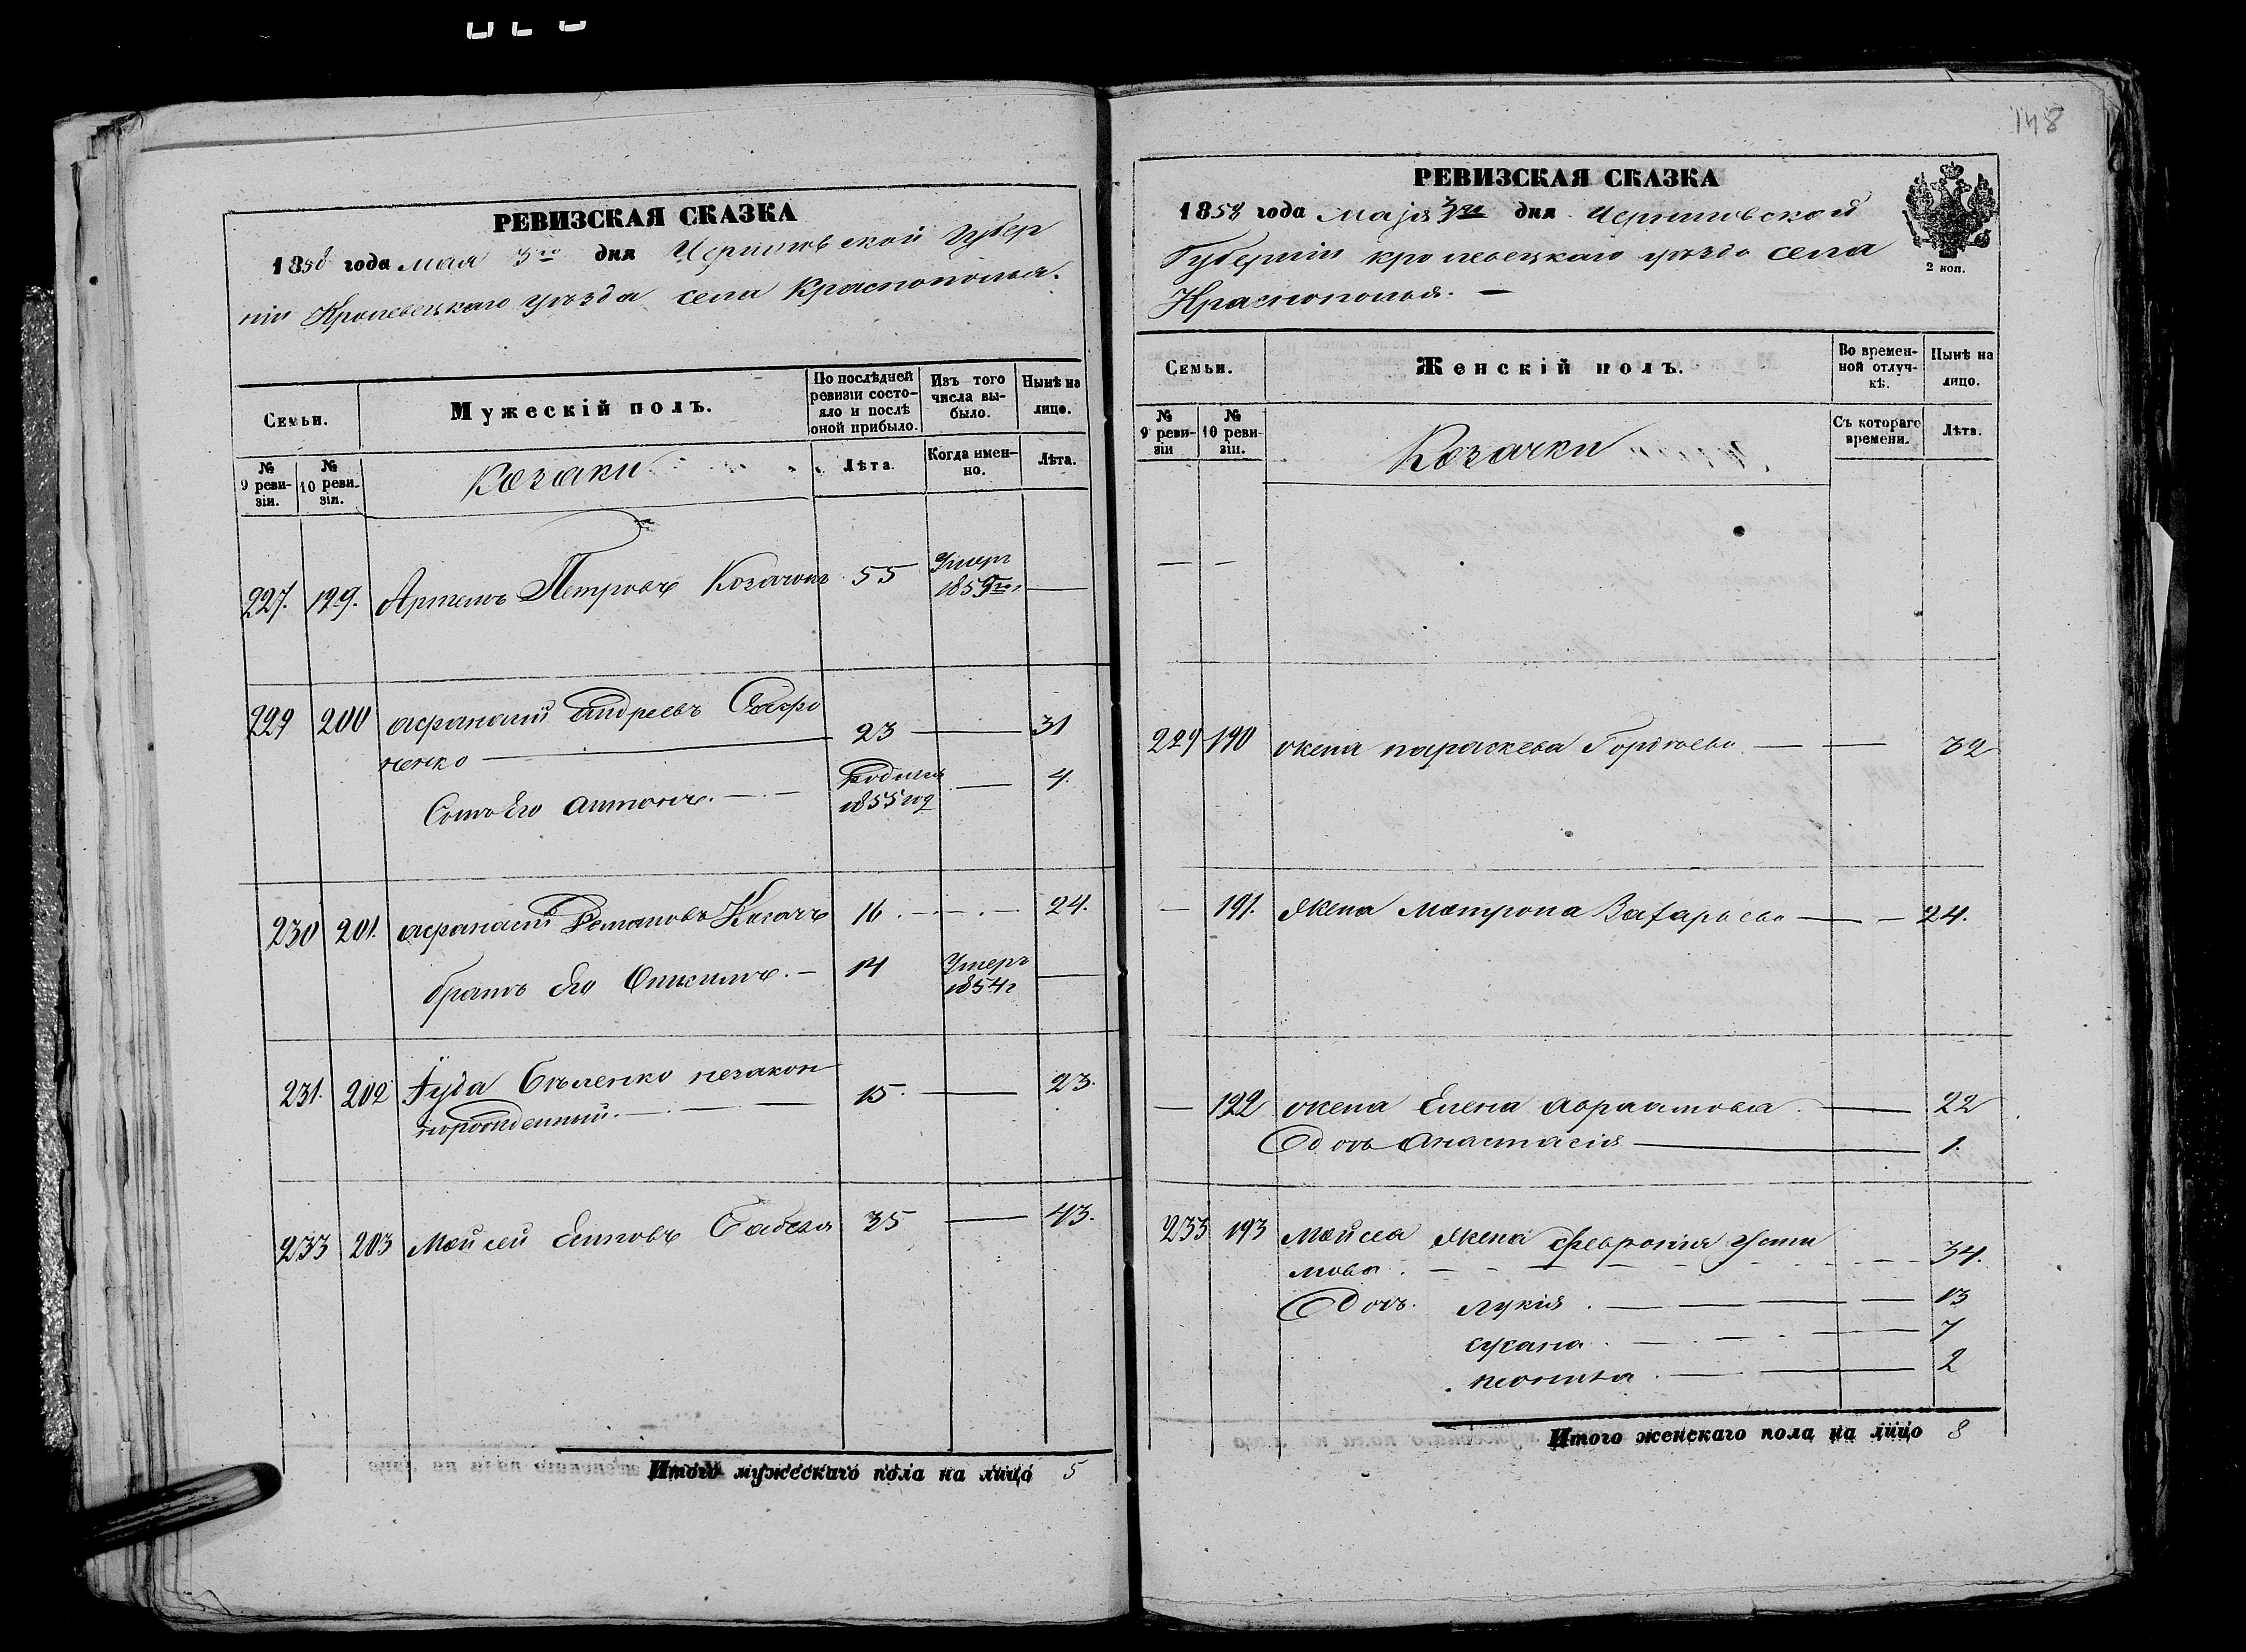 РЕВИЗСКАЯ СКАЗКА
1858 года мая 3го дня Черниговской Губер
ніи Кролевецкаго уѣзда села Краснополья.
Семьи.
Мужескій полъ.
По послѣдней ревизіи состояло и послѣ оной прибыло.
Изъ того числа выбыло.
Нынѣ на лицо.
№ 9 ревизіи.
№ 10 ревизіи.
Козаки
Лѣта.
Когда именно.
Лѣта.
227. 199. Артемъ Петровъ 55 Умеръ
185 —
229 200 Афанасій Андреевъ Сафро
ненко — 23 — 31
Сынъ Его Антонъ. — Родился — 4.
1855 год
230 201. Афанасій Романовъ Козачъ 16. — 24.
братъ Его Онисимъ. — 14 Умеръ —
1854г
231. 202 Іуда Бѣленко незакон
норожденный. — 15. — 23.
233 203 Мойсей 35 — 43.
Итого мужескаго пола на лицо 5
148
РЕВИЗСКАЯ СКАЗКА
1858 года маія 3го дня Черниговской
Губерніи кролевецкаго уѣзда села
Краснополья. —
2 коп.
Семьи.
Женскій полъ.
Во временной отлучкѣ.
Нынѣ на лицо.
№ 9 ревизіи
№ 10 ревизіи.
Козачки
Съ котораго времени.
Лѣта.
— —
229 190 жена параскева Гордѣева — — 32
— 191. Жена Матрона Захарьева — — 24.
— 192 жена Елена Авраамова — 22
Дочь Анастасія — 1.
233 193 Мойсея Жена Феврония Усти
мова. — 34.
Дочь. Лукія. — 13
— 7
— 2
Итого женскаго пола на лицо 8